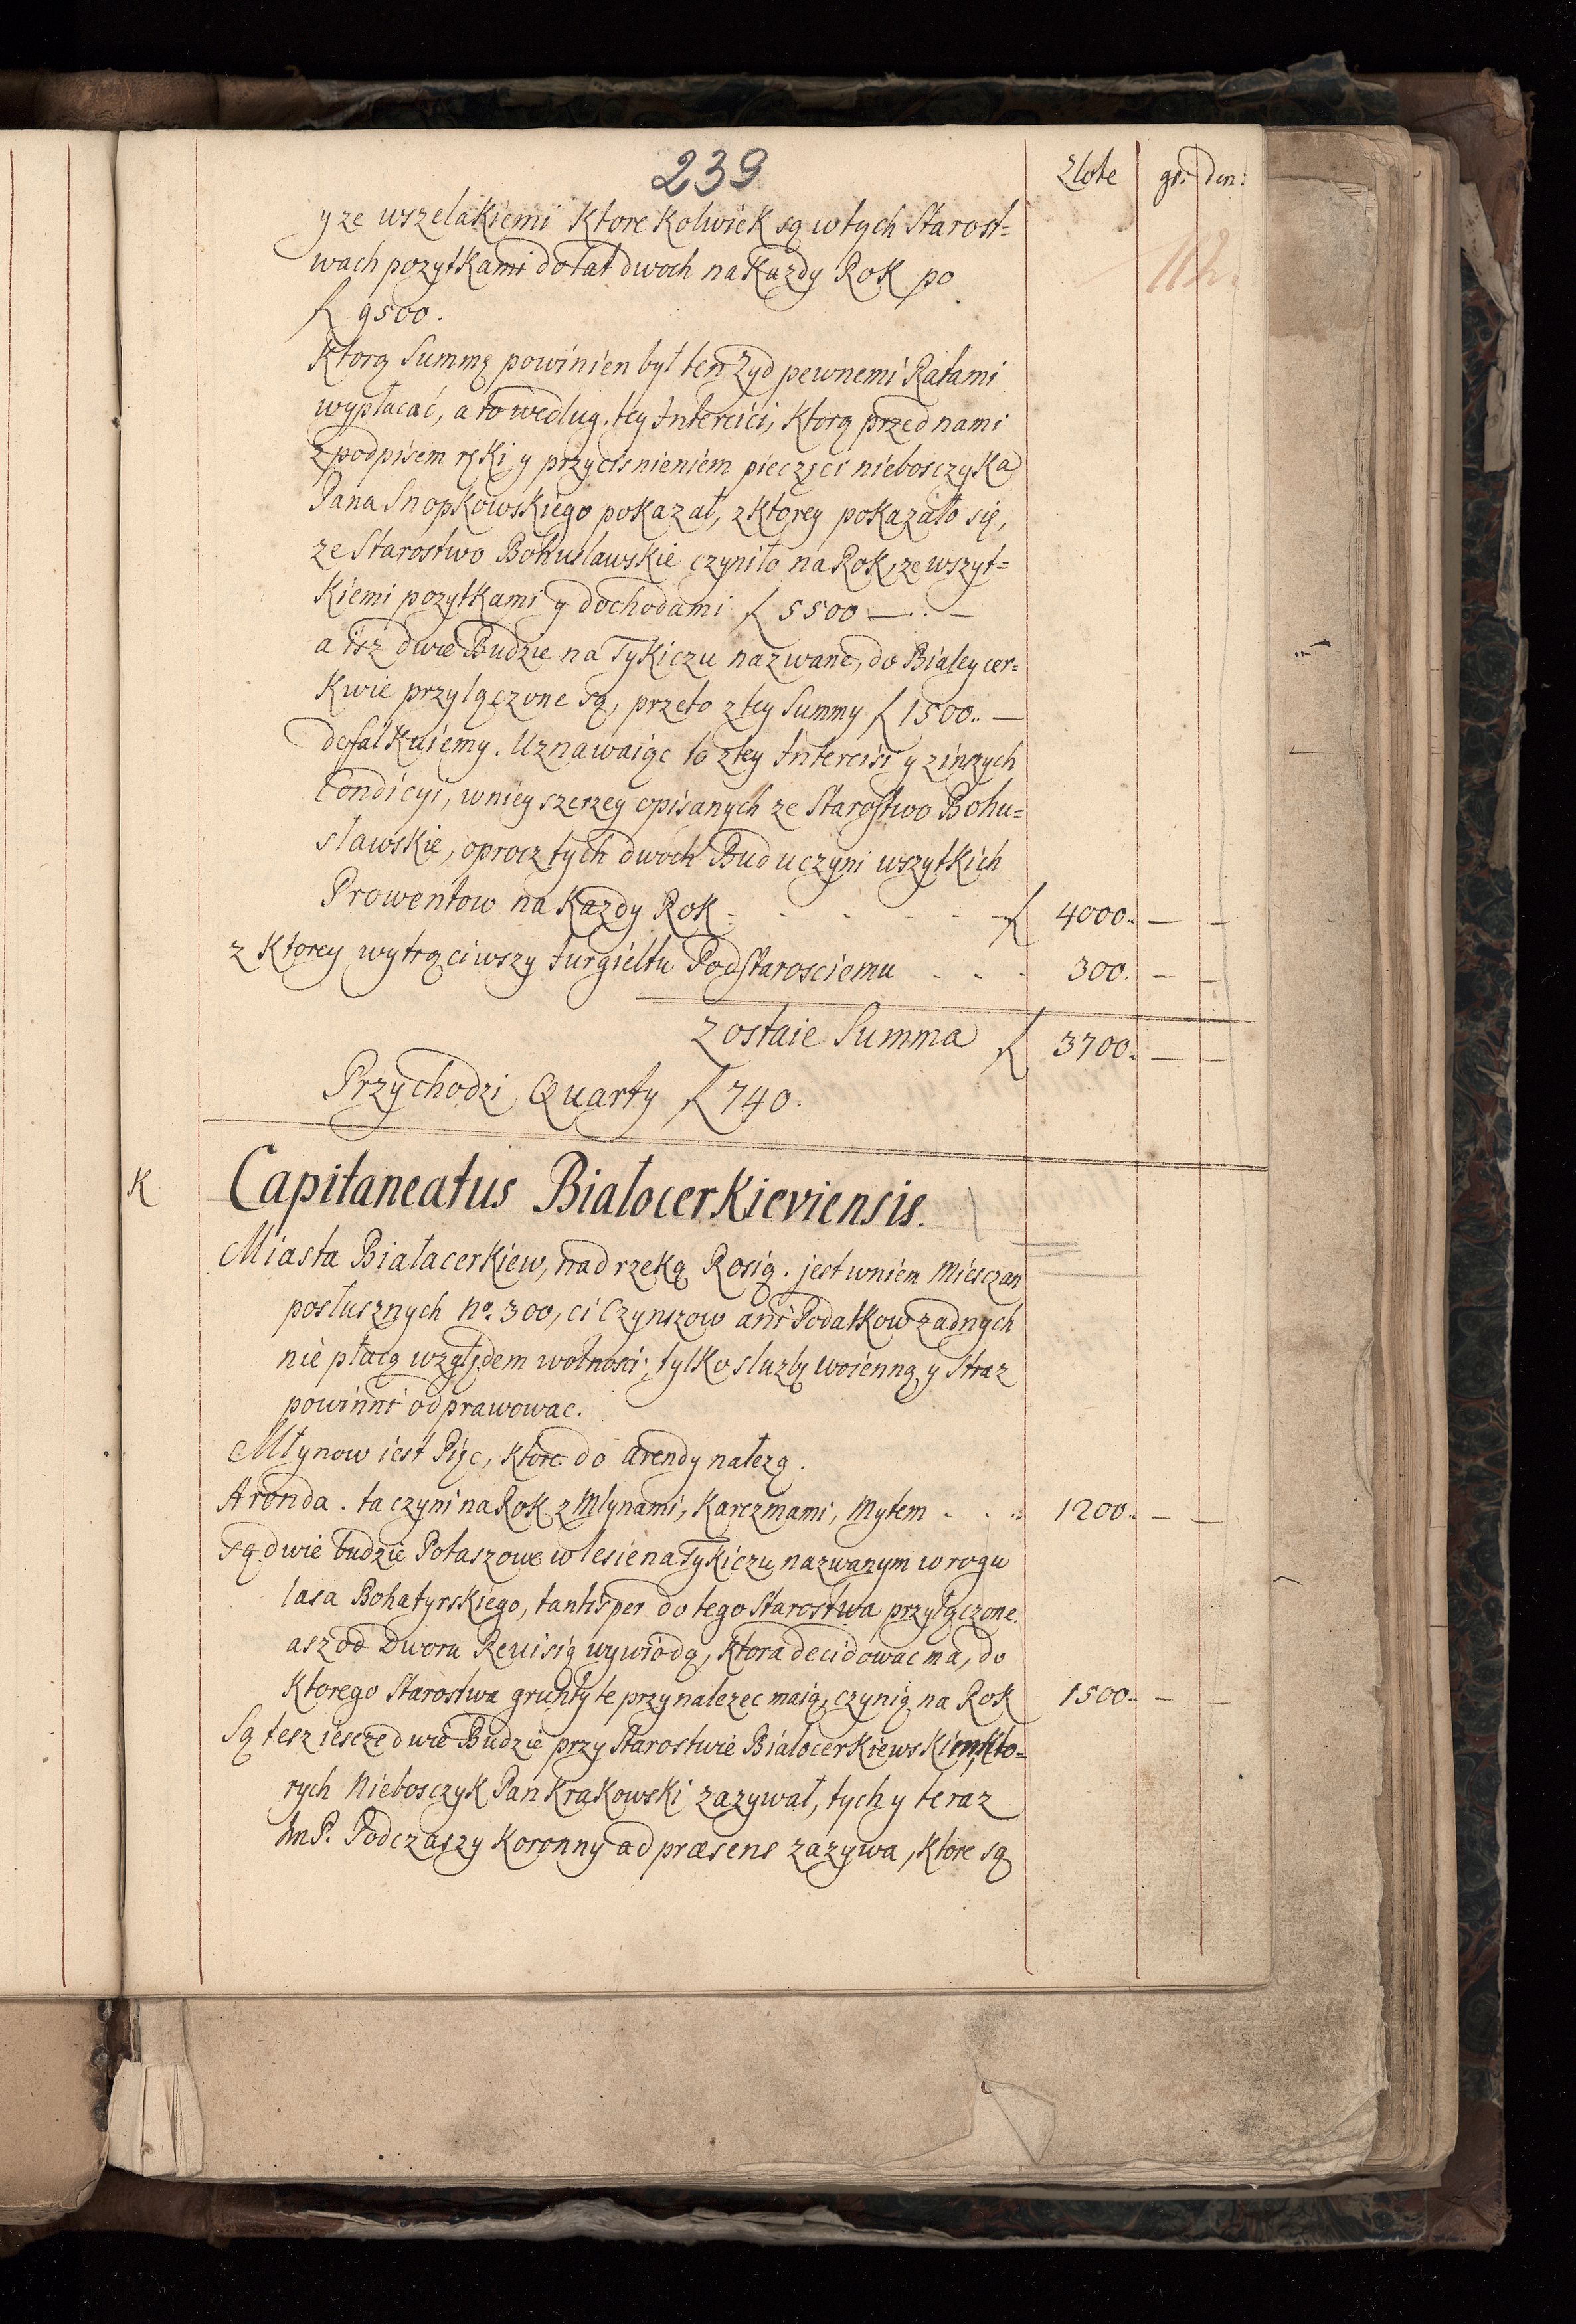 239
Zlote gr. den:
112.
y ze wszelakiemi Ktore Kolwiek są w tych Starost=
wach pozytKami do łat dwoch na Kazdy RoK po
f 9500.
Ktorą Summę powinien był ten Zyd pewnemi Ratami
wypłacać, a to wedlug tey Intercici, Ktorą przed nami
z podpisem rękí y przycisnieniem pieczęci niebosczyka
Pana Snopkowskiego pokazał, z Ktorey pokazało się,
ze Starostwo Bohuslauskie czyniło na Rok, ze wszyt=
Kiemi pozytKami y dochodami f 5500 — . —
a isz dwie Budzie na Tykiczu nazwane, do Bialey cer=
Kwie przyłączone są, przeto z tey Summy f 1500.. —
defalKuiemy. Uznawaiąc to z tey Intercisi y z inszych
Condicyi, w niey szerzey opisanych ze Starostwo Bohu=
sławskie, oprocz tych dwoch Bud uczyni wszytkich
Prowentow na Kazdy Rok - - - - - f 4000.. — —
z Ktorey wytrąciwszy Iurgieltu Podstarosciemu - - - 300. — —
Zostaie Summa f 3700. — —
Przychodzi Quarty f 740.
K Capitaneatus BiałocerKieviensis.
Miasta BiałacerKiew, nad rzeką Rosią. jest w niem Miesczan
posłusznych no. 300, ci Czynszow ani Podatkow zadnych
nie płacą względem wolnosci, tylko sluzbę woienną y Straz
powinni odprawowac.
Młynow iest Pięc, Ktore do arendy nalezą.
Aronda. ta czyni na Rok z Mlynami, Karczmami, Mytem . . . 1200. — —
są dwie budzie Potaszowe w lesie na Tykiczu nazwanym w rogu
lasa Bohatyrskiego, tantisper do tego Starostwa przyłączone.
asz od Dworu Reuisią wywiodą, Ktora decidowac ma, do
Ktorego Starostwa grunty te przynalezec maią, czynią na Rok 1500. — —
Są tesz iescze dwie Budzie przy Starostwie BialocerKiewskim, Kto=
rych Niebosczyk Pan Krakowski zazywał, tych y teraz
ImP. Podczaszy Koronny ad præsens zazywa, Ktore są